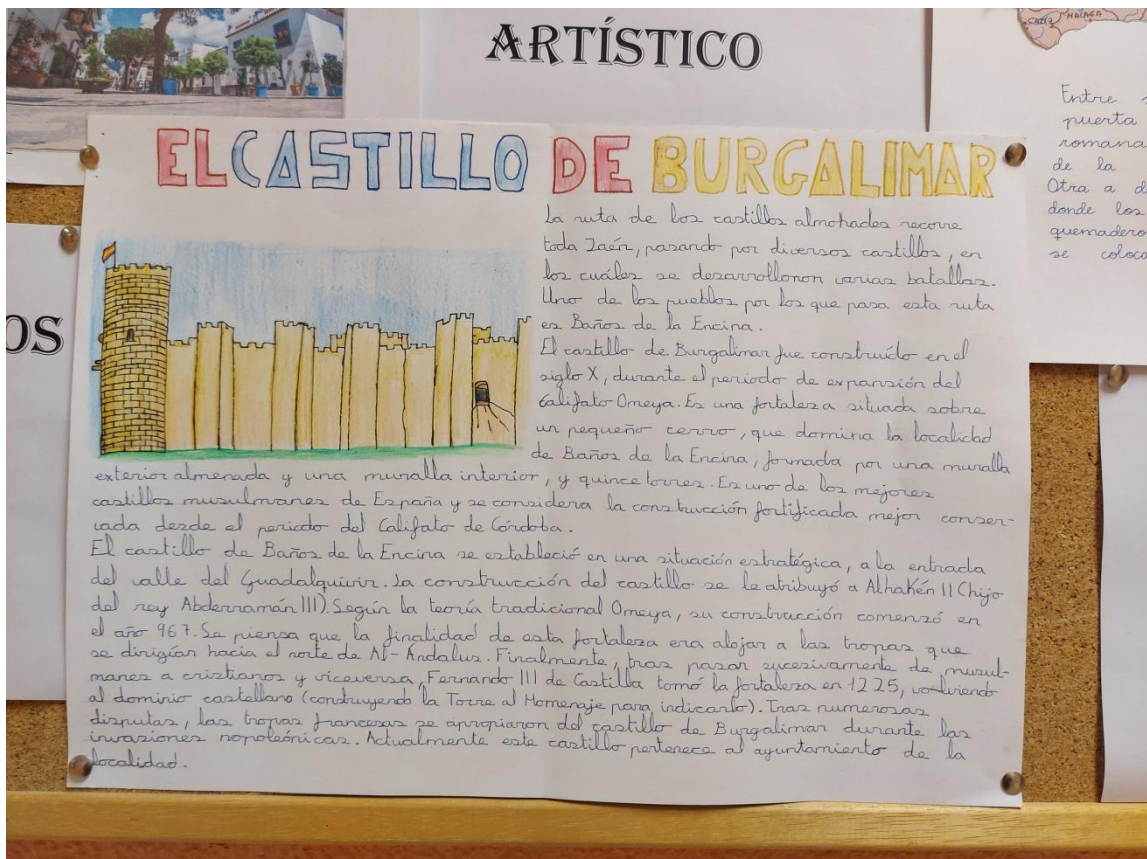 ARTÍSTICO
CADIZ MALAGA
OS
Entre
puerta
romana
de la
Otra a
donde los
quemadero
se coloca
EL CASTILLO DE BURGALIMAR
La ruta de los castillos almohades recorre
toda Jaén, pasando por diversos castillos, en
los cuáles se desarrollonon varias batallas.
Uno de los pueblos por los que pasa esta ruta
es Baños de la Encina.
El castillo de Burgalimar fue construído en el
siglo X, durante el periodo de expansión del
Califato Omeya. Es una fortaleza situada sobre
un pequeño cerro, que domina la localidad
de Baños de la Encina, formada por una muralla
exterior almenada y una muralla interior, y quince torres. Es uno de los mejores
castillos musulmanes de España y se considera la construcción fortificada mejor conser-
vada desde el periodo del Califato de Córdoba.
El castillo de Baños de la Encina se estableció en una situación estratégica, a la entrada
del valle del Guadalquivir. La construcción del castillo se le atribuyó a Alhakén II (hijo
del rey Abderramán III). Según la teoría tradicional Omeya, su construcción comenzó en
el año 967. Se piensa que la finalidad de esta fortaleza era alojar a las tropas que
se dirigían hacia el norte de Al-Andalus. Finalmente, tras pasar sucesivamente de musul-
manes a cristianos y viceversa, Fernando III de Castilla tomó la fortaleza en 1225, volviendo
al dominio castellano (construyendo la Torre al Homenaje para indicarlo). Tras numerosas
disputas, las tropas francesas se apropiaron del castillo de Burgalimar durante las
invasiones napoleónicas. Actualmente este castillo pertenece al ayuntamiento de la
localidad.